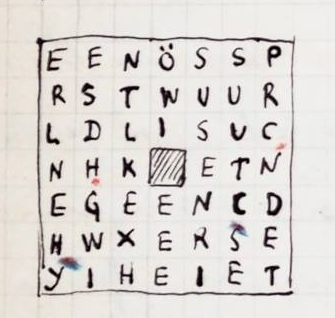 E E N Ö S S P
R S T W U U R
L D L I S U C
N H K E T N
E G E E N C D
H W X E R S E
Y I H E I E T